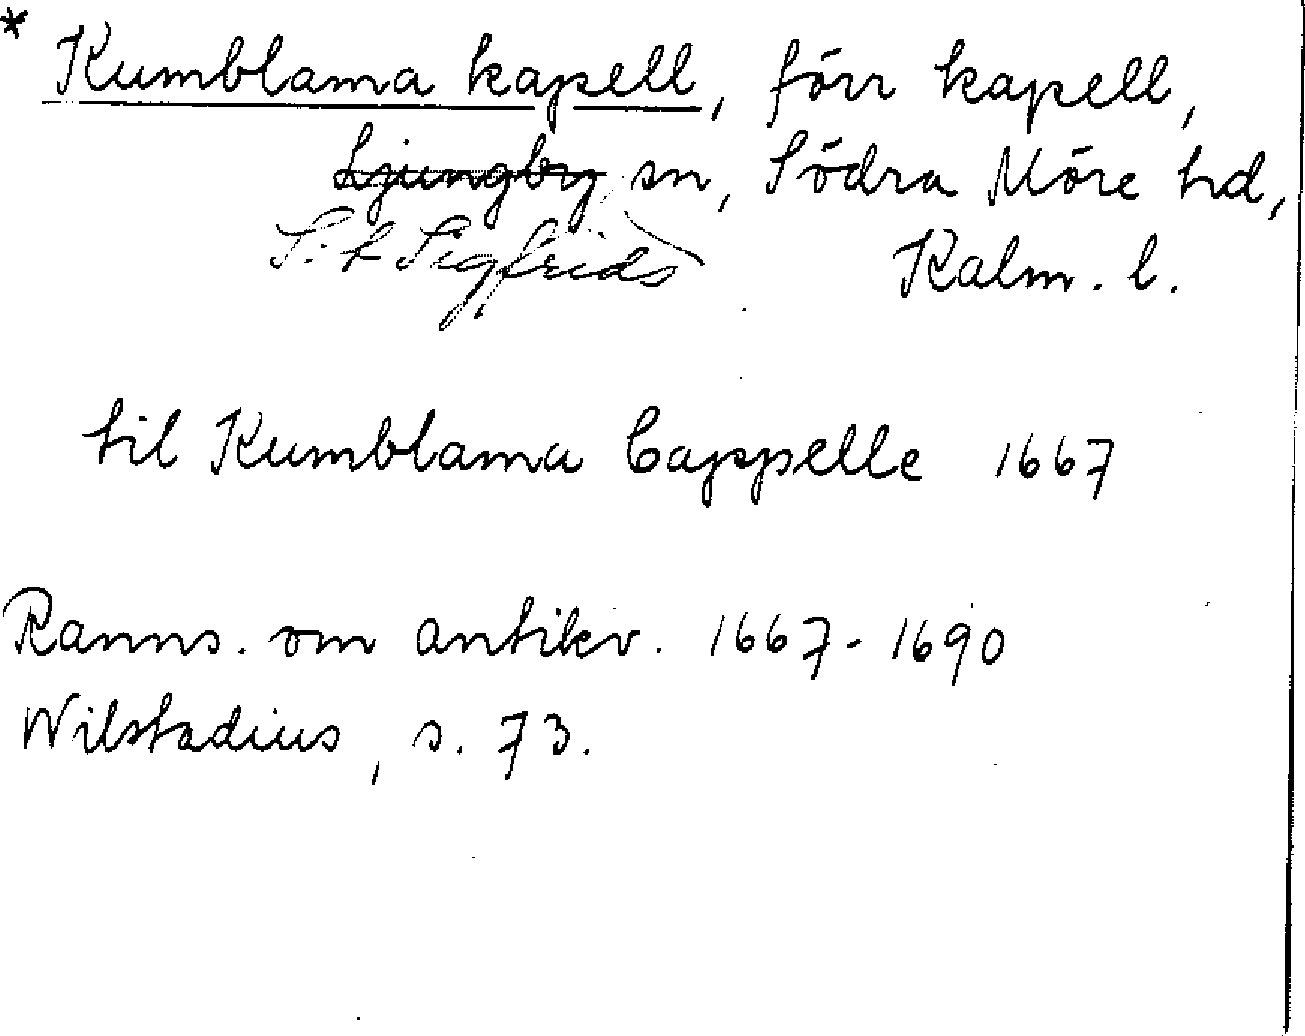 * Kumblama kapell, förr kapell,
Ljungby sn, Södra Möre hd,
S:t Sigfrids Kalm. l.
til Kumblama Cappelle 1667
Ranns. om antikv. 1667-1690
Wilstadius, s. 73.